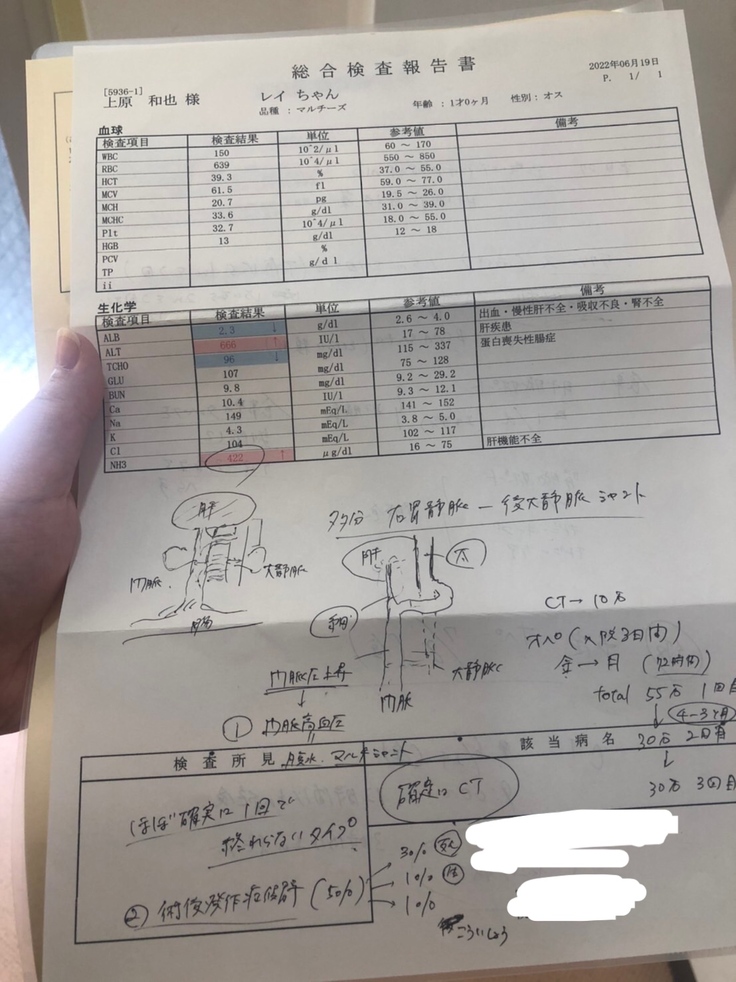 総合検査報告書
2022年06月19日
P. 1/ 1
[5936-1]
上原 和也 様
レイ ちゃん
品種 : マルチーズ
年齢 : 1才0ヶ月
性別 : オス
血球
検査項目 検査結果 単位 参考値 備考
WBC 150 10^2/μl 60 ～ 170
RBC 639 10^4/μl 550 ～ 850
HCT 39.3 % 37.0 ～ 55.0
MCV 61.5 fl 59.0 ～ 77.0
MCH 20.7 pg 19.5 ～ 26.0
MCHC 33.6 g/dl 31.0 ～ 39.0
Plt 32.7 10^4/μl 18.0 ～ 55.0
HGB 13 g/dl 12 ～ 18
PCV %
TP g/dl
ii
生化学
検査項目 検査結果 単位 参考値 備考
ALB 2.3 ↓ g/dl 2.6 ～ 4.0 出血・慢性肝不全・吸収不良・腎不全
ALT 666 ↑ IU/l 17 ～ 78 肝疾患
TCHO 96 ↓ mg/dl 115 ～ 337 蛋白喪失性腸症
GLU 107 mg/dl 75 ～ 128
BUN 9.8 mg/dl 9.2 ～ 29.2
Ca 10.4 IU/l 9.3 ～ 12.1
Na 149 mEq/L 141 ～ 152
K 4.3 mEq/L 3.8 ～ 5.0
Cl 104 mEq/L 102 ～ 117
NH3 422 ↑ μg/dl 16 ～ 75 肝機能不全
肝
門脈
大静脈
腸
多分 右胃静脈 ― 後大静脈 シャント
肝
太
細
大静脈
門脈
門脈圧上昇
↓
① 門脈高血圧
CT→10万
オペ (入院3日間)
金→月 (72時間)
total 55万 1回目
↓ 4-3ヶ月
30万 2回目
↓
30万 3回目
検査所見 腹水. マルチシャント
該当病名
ほぼ確実に1回で
終わらないタイプ
確定は CT
② 術後発作症候群 (50%)
30% 死
10%
10%
こういしょう